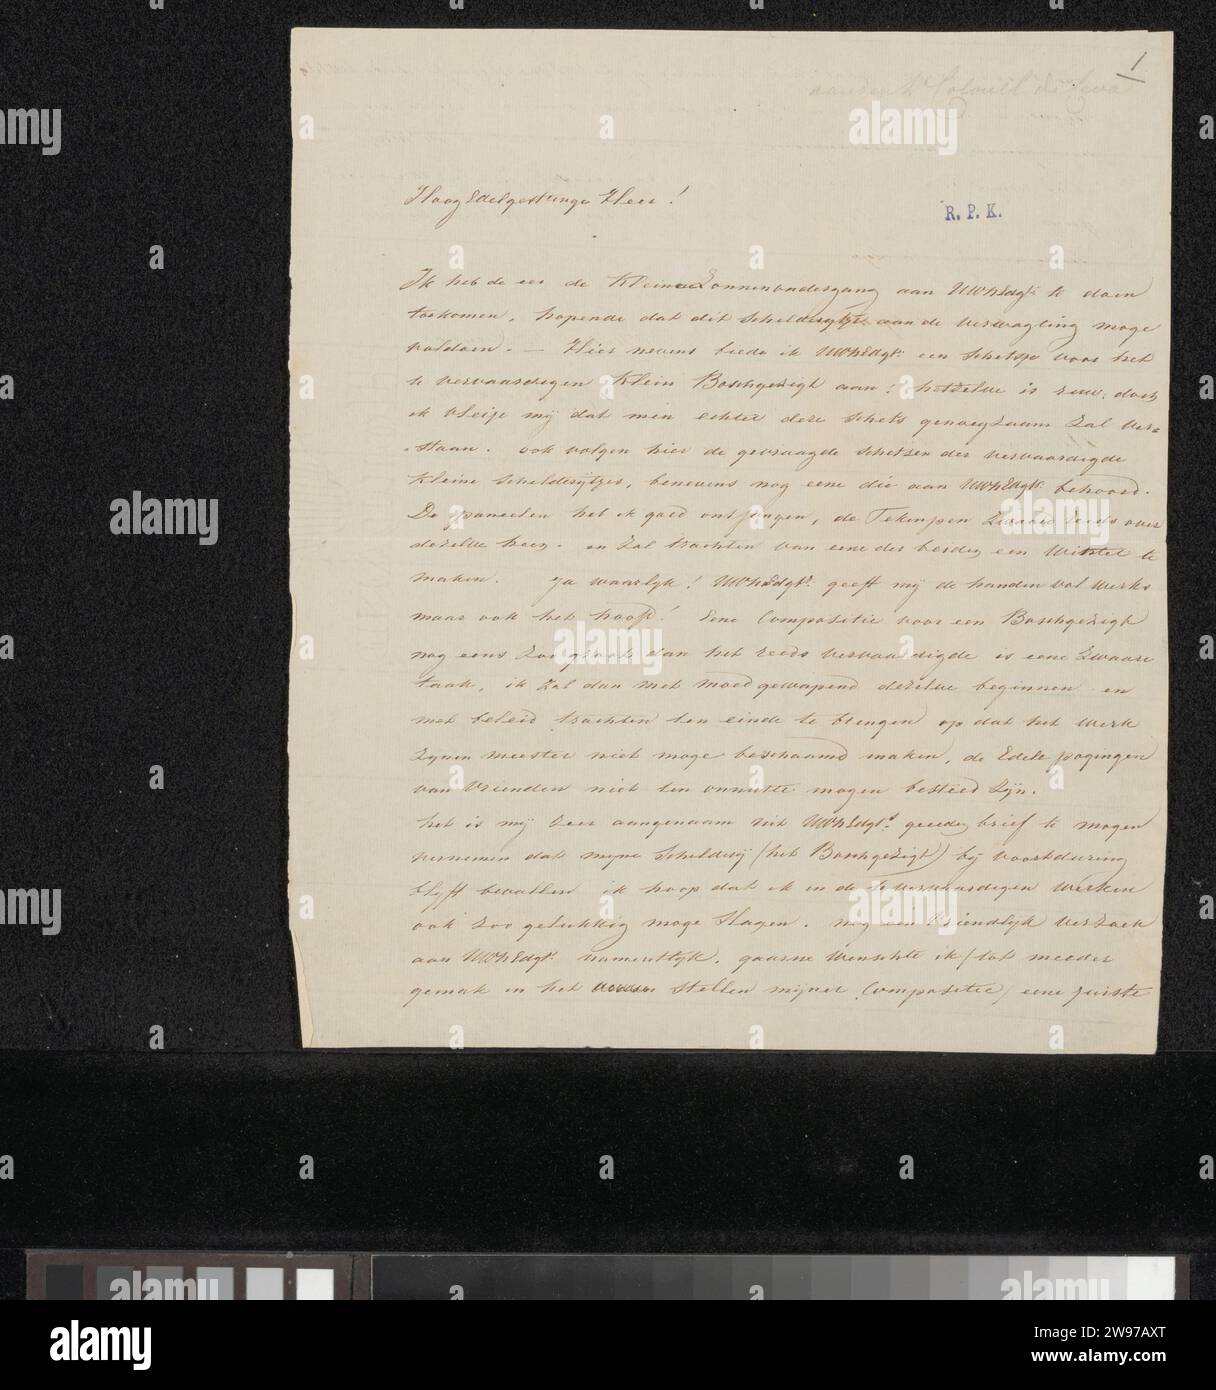 1
aan den Hr Colonell de Ceva
Hoog Edelgestrenge Heer!
R. P. K.
Ik heb de eer de Kleine Zonnenondergang aan UWhEdgt. te doen
toekomen, hopende dat dit schilderijtje aan de verwagting moge
voldoen. — Hier nevens biede ik UWhEdgt. een schetsje voor het
te vervaardigen Klein Boschgezigt aan: hetzelve is ruw, doch
ik vleije mij dat men echter deze schets genoegzaam zal ver=
=staan. ook volgen hier de gevraagde schetsen der vervaardigde
Kleine schilderijtjes, benevens nog eene die aan UWhEdgt. behoord.
De paneelen heb ik goed ontfangen, de Tekenpen zwaaid reeds over
dezelve heen. en zal trachten van eene der beiden een Winter te
maken. Ja waarlyk! UWhEdgt. geeft mij de handen vol werks
maar ook het hoofd! Eene Compositie voor een Boschgezigt
nog eens zoo groot dan het reeds vervaardigde is eene zwaare
taak, ik zal dan met moed gewapend dezelve beginnen en
met beleid trachten ten einde te brengen op dat het werk
zynen meester niet moge beschaamd maken, de Edele pogingen
van Vrienden niet ten onnutte mogen besteed zijn.
het is mij zeer aangenaam uit UWhEdgt. geeerden brief te mogen
vernemen dat mijne schilderij (het Boschgezigt) bij voortduring
blijft bevallen ik hoop dat ik in de te vervaardigen werken
ook zoo gelukkig moge slagen. nog een vriendlyk verzoek
aan UWhEdgt. namentlyk. gaarne wenschte ik (tot meeder
gemak in het stellen mijner Compositie) eene juiste